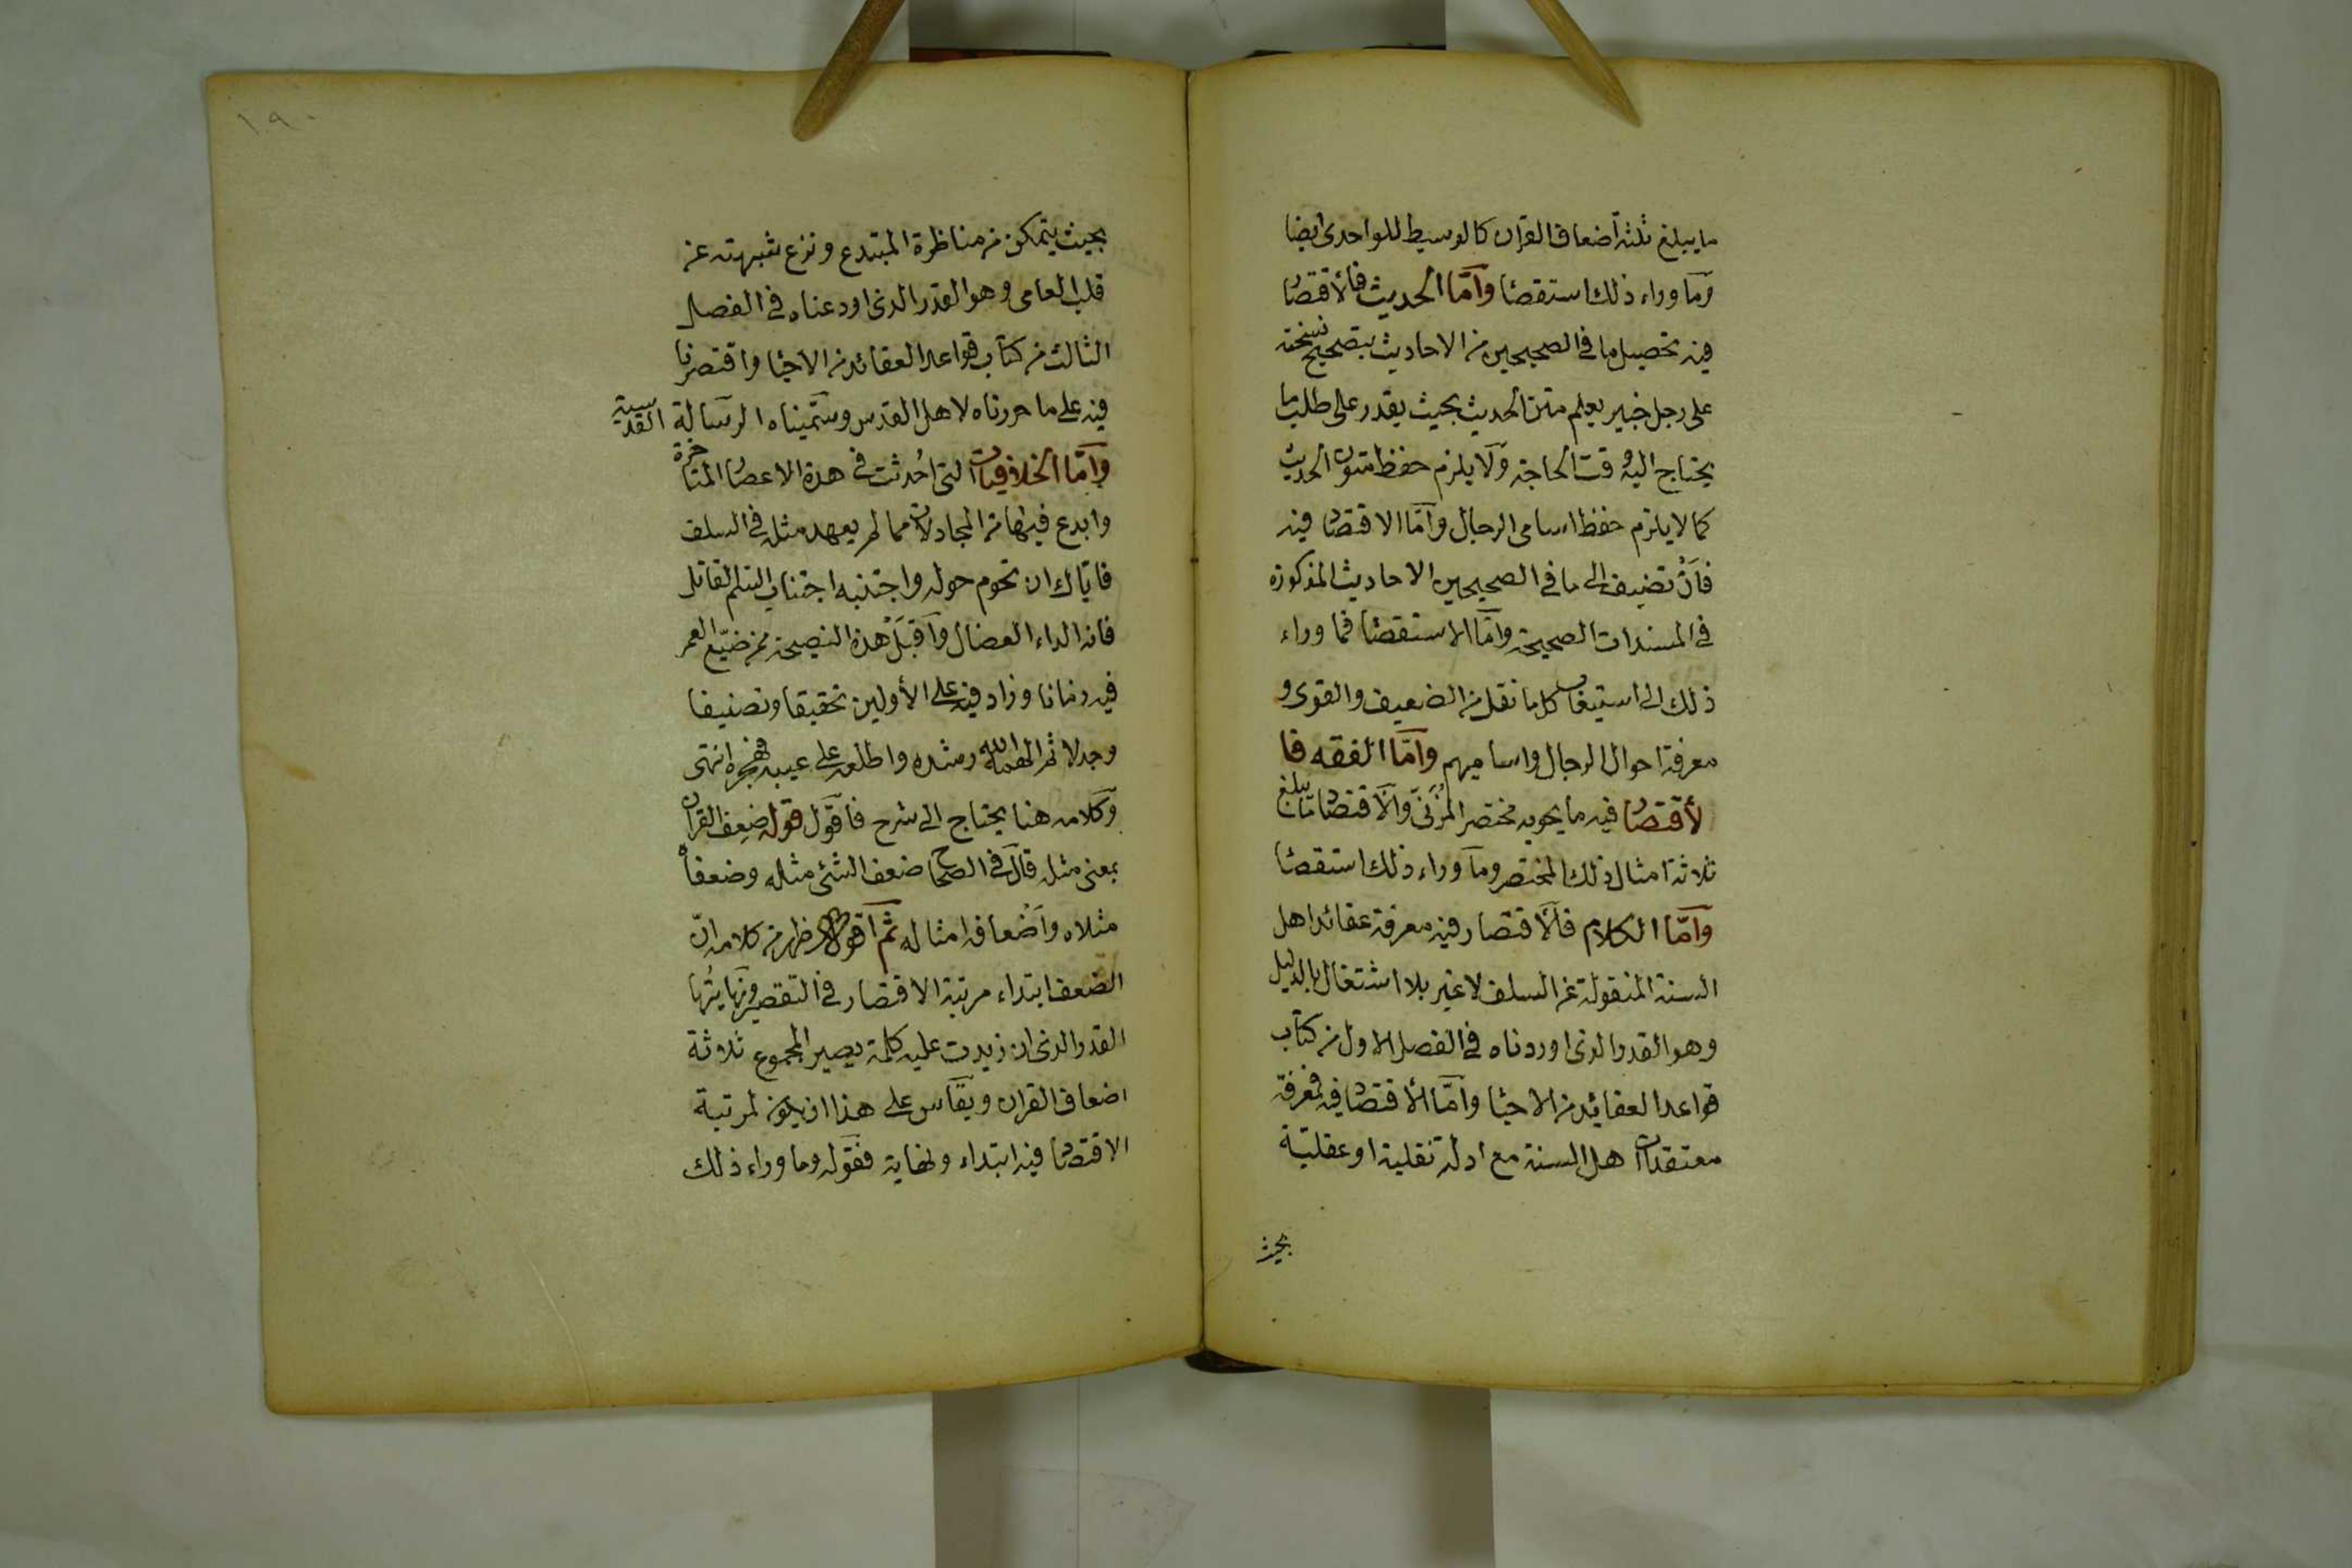 ما يبلغ ثلثة أضعاف القرآن كالوسيط للواحدى ايضا
وما وراء ذلك استقصا وامّا الحديث فالأقتصا
فيه تحصيل ما فى الصحيحين من الاحاديث بتصحيح نسخته
على رجل خبير بعلم متن الحديث بحيث يقدر على طلب ما
يحتاج اليه وقت الحاجة ولا يلزم حفظ متون الحديث
كما لا يلزم حفظ اسامى الرجال وامّا الاقتصا فيه
فأن تضيف الى ما فى الصحيحين الاحاديث المذكورة
فى المسندات الصحيحة وامّا الاستقصا فما وراء
ذلك الى استيعاب كل ما نقل من الضعيف والقوى و
معرفة احوال الرجال واساميهم وامّا الفقه فا
لأقتصا فيه ما يحويه مختصر المُزَنىّ والاقتصا ما يبلغ
ثلاثة امثال ذلك المختصر وما وراء ذلك استقصا
وامّا الكلام فالاقتصار فيه معرفة عقائد اهل
السنة المنقولة عن السلف لا غير بلا اشتغال بالدليل
وهو القدر الذى اوردناه فى الفصل الاول من كتاب
قواعد العقائد من الاحيا وامّا الأقتصا فيه فمعرفة
معتقدات اهل السنة مع ادلة نقلية او عقليّة
بحيث
١٩٠
بحيث يتمكن من مناظرة المبتدع ونزع شبهته عن
قلب العامى وهو القدر الذى اودعناه فى الفصل
الثالث من كتاب قواعد العقائد من الاحيا واقتصرنا
فيه على ما حررناه لاهل القدس وسمّيناه الرسالة القدسية
وامّا الخلافيات التى اُحدثت فى هذه الاعصا المتأخرة
وابدع فيها من المجادلات مما لم يعهد مثله فى السلف
فايّاك ان تحوم حوله واجتنبه اجتناب السّم القاتل
فانه الداء العضال واقبَلْ هذه النصيحة ممن ضيّع العمر
فيه زمانا وزاد فيه على الأولين تحقيقا وتصنيفا
وجدلا ثم الهمه الله رشده واطلعه على عيبه فهجره انتهى
وكلامه هنا يحتاج الى شرح فاقول قوله ضِعف القرآن
بمعنى مثله قال فى الصحاح ضعف الشئ مثله وضعفاه
مثلاه وأضعافه امثاله ثم اقول ظهر من كلامه انّ
الضعف ابتداء مرتبة الاقتصار فى التفسير ونهايتها
القدر الذى ان زيدت عليه كلمة يصير المجموع ثلاثة
اضعاف القرآن ويقاس على هذا ان يكون لمرتبة
الاقتصا فيه ابتداء ونهاية فقوله وما وراء ذلك